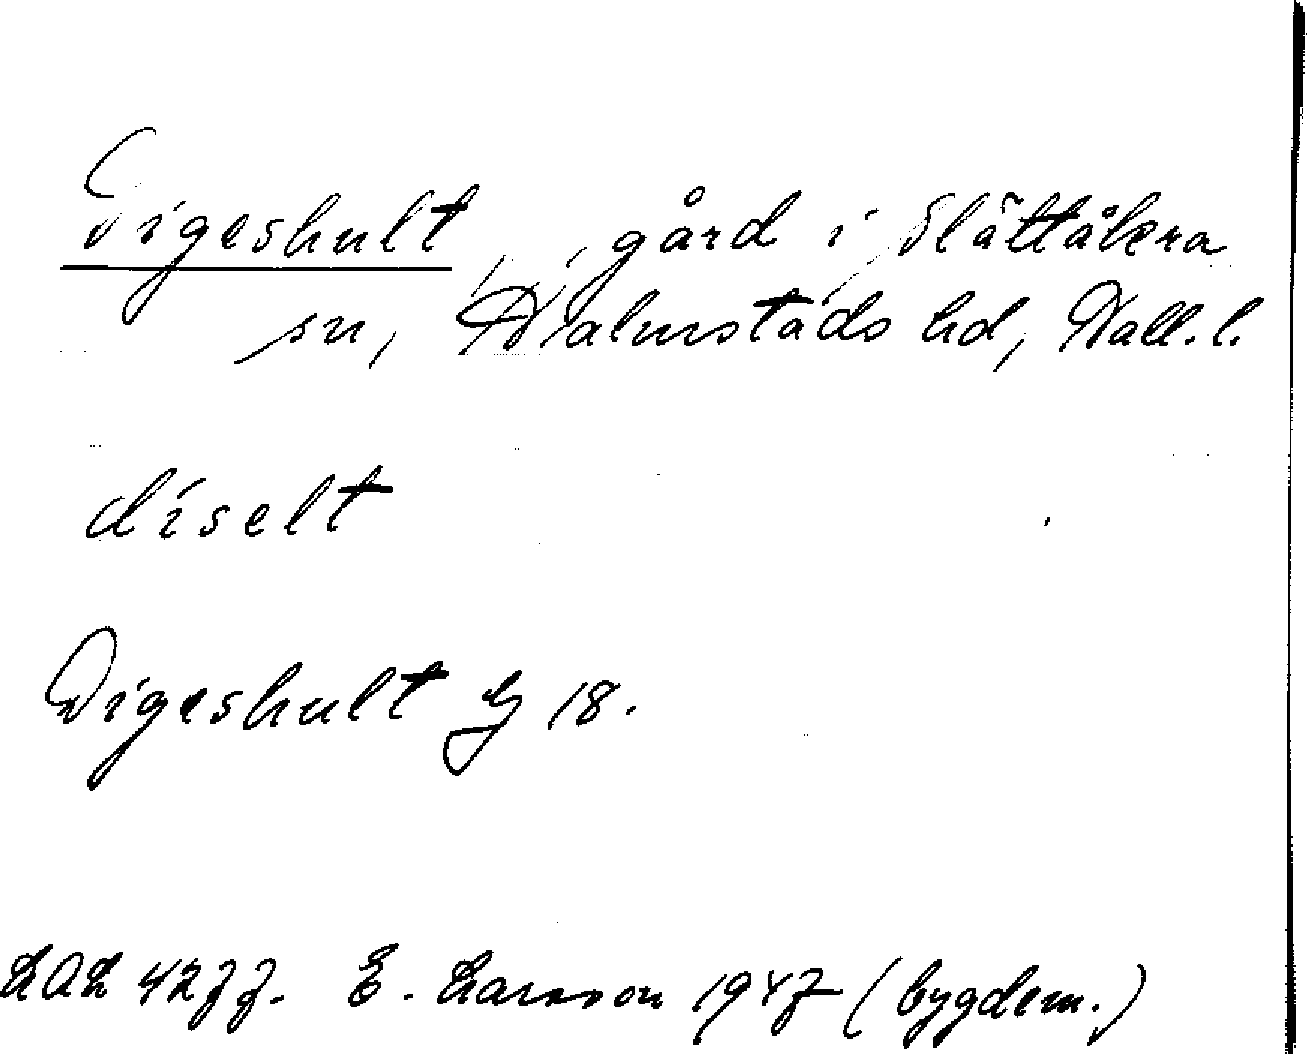 Digeshult, gård i Slättåkra
sn, Halmstads hd, Hall. l.
díselt
Digeshult G 18.
LAL 4277. E. Larsson 1947 (bygdem.)